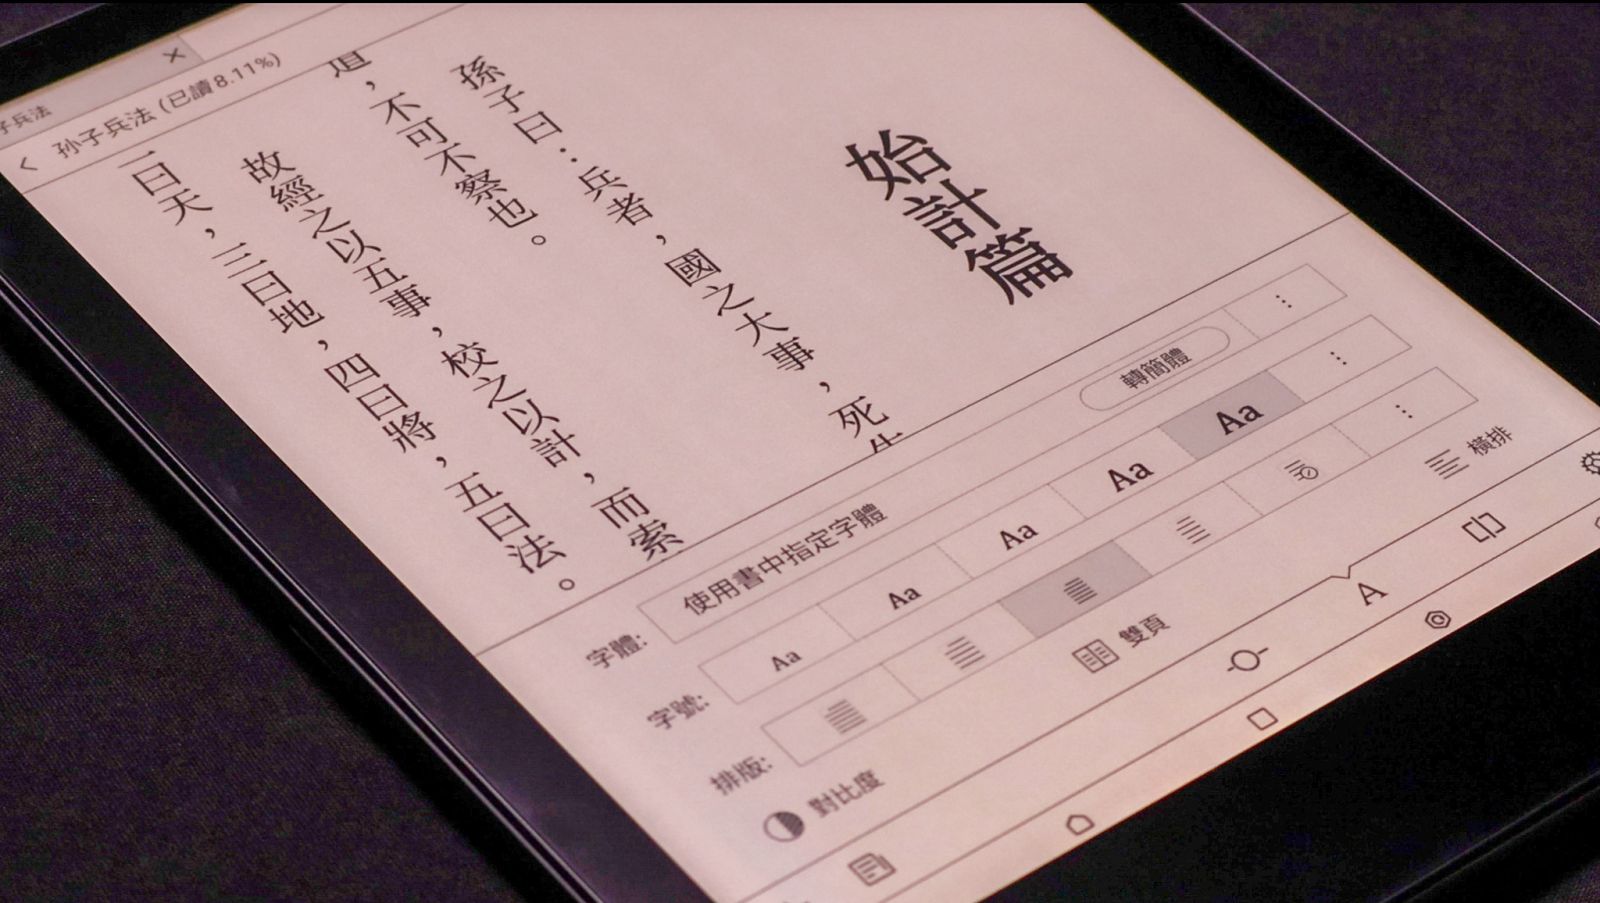 子兵法
孙子兵法 (已讀8.11%)
始計篇
孫子曰：兵者，國之大事，死
道，不可不察也。
故經之以五事，校之以計，而索
曰天，三曰地，四曰將，五曰法。
字體: 使用書中指定字體 轉簡體
字號: Aa Aa Aa Aa Aa
排版:
對比度 雙頁 橫排
A